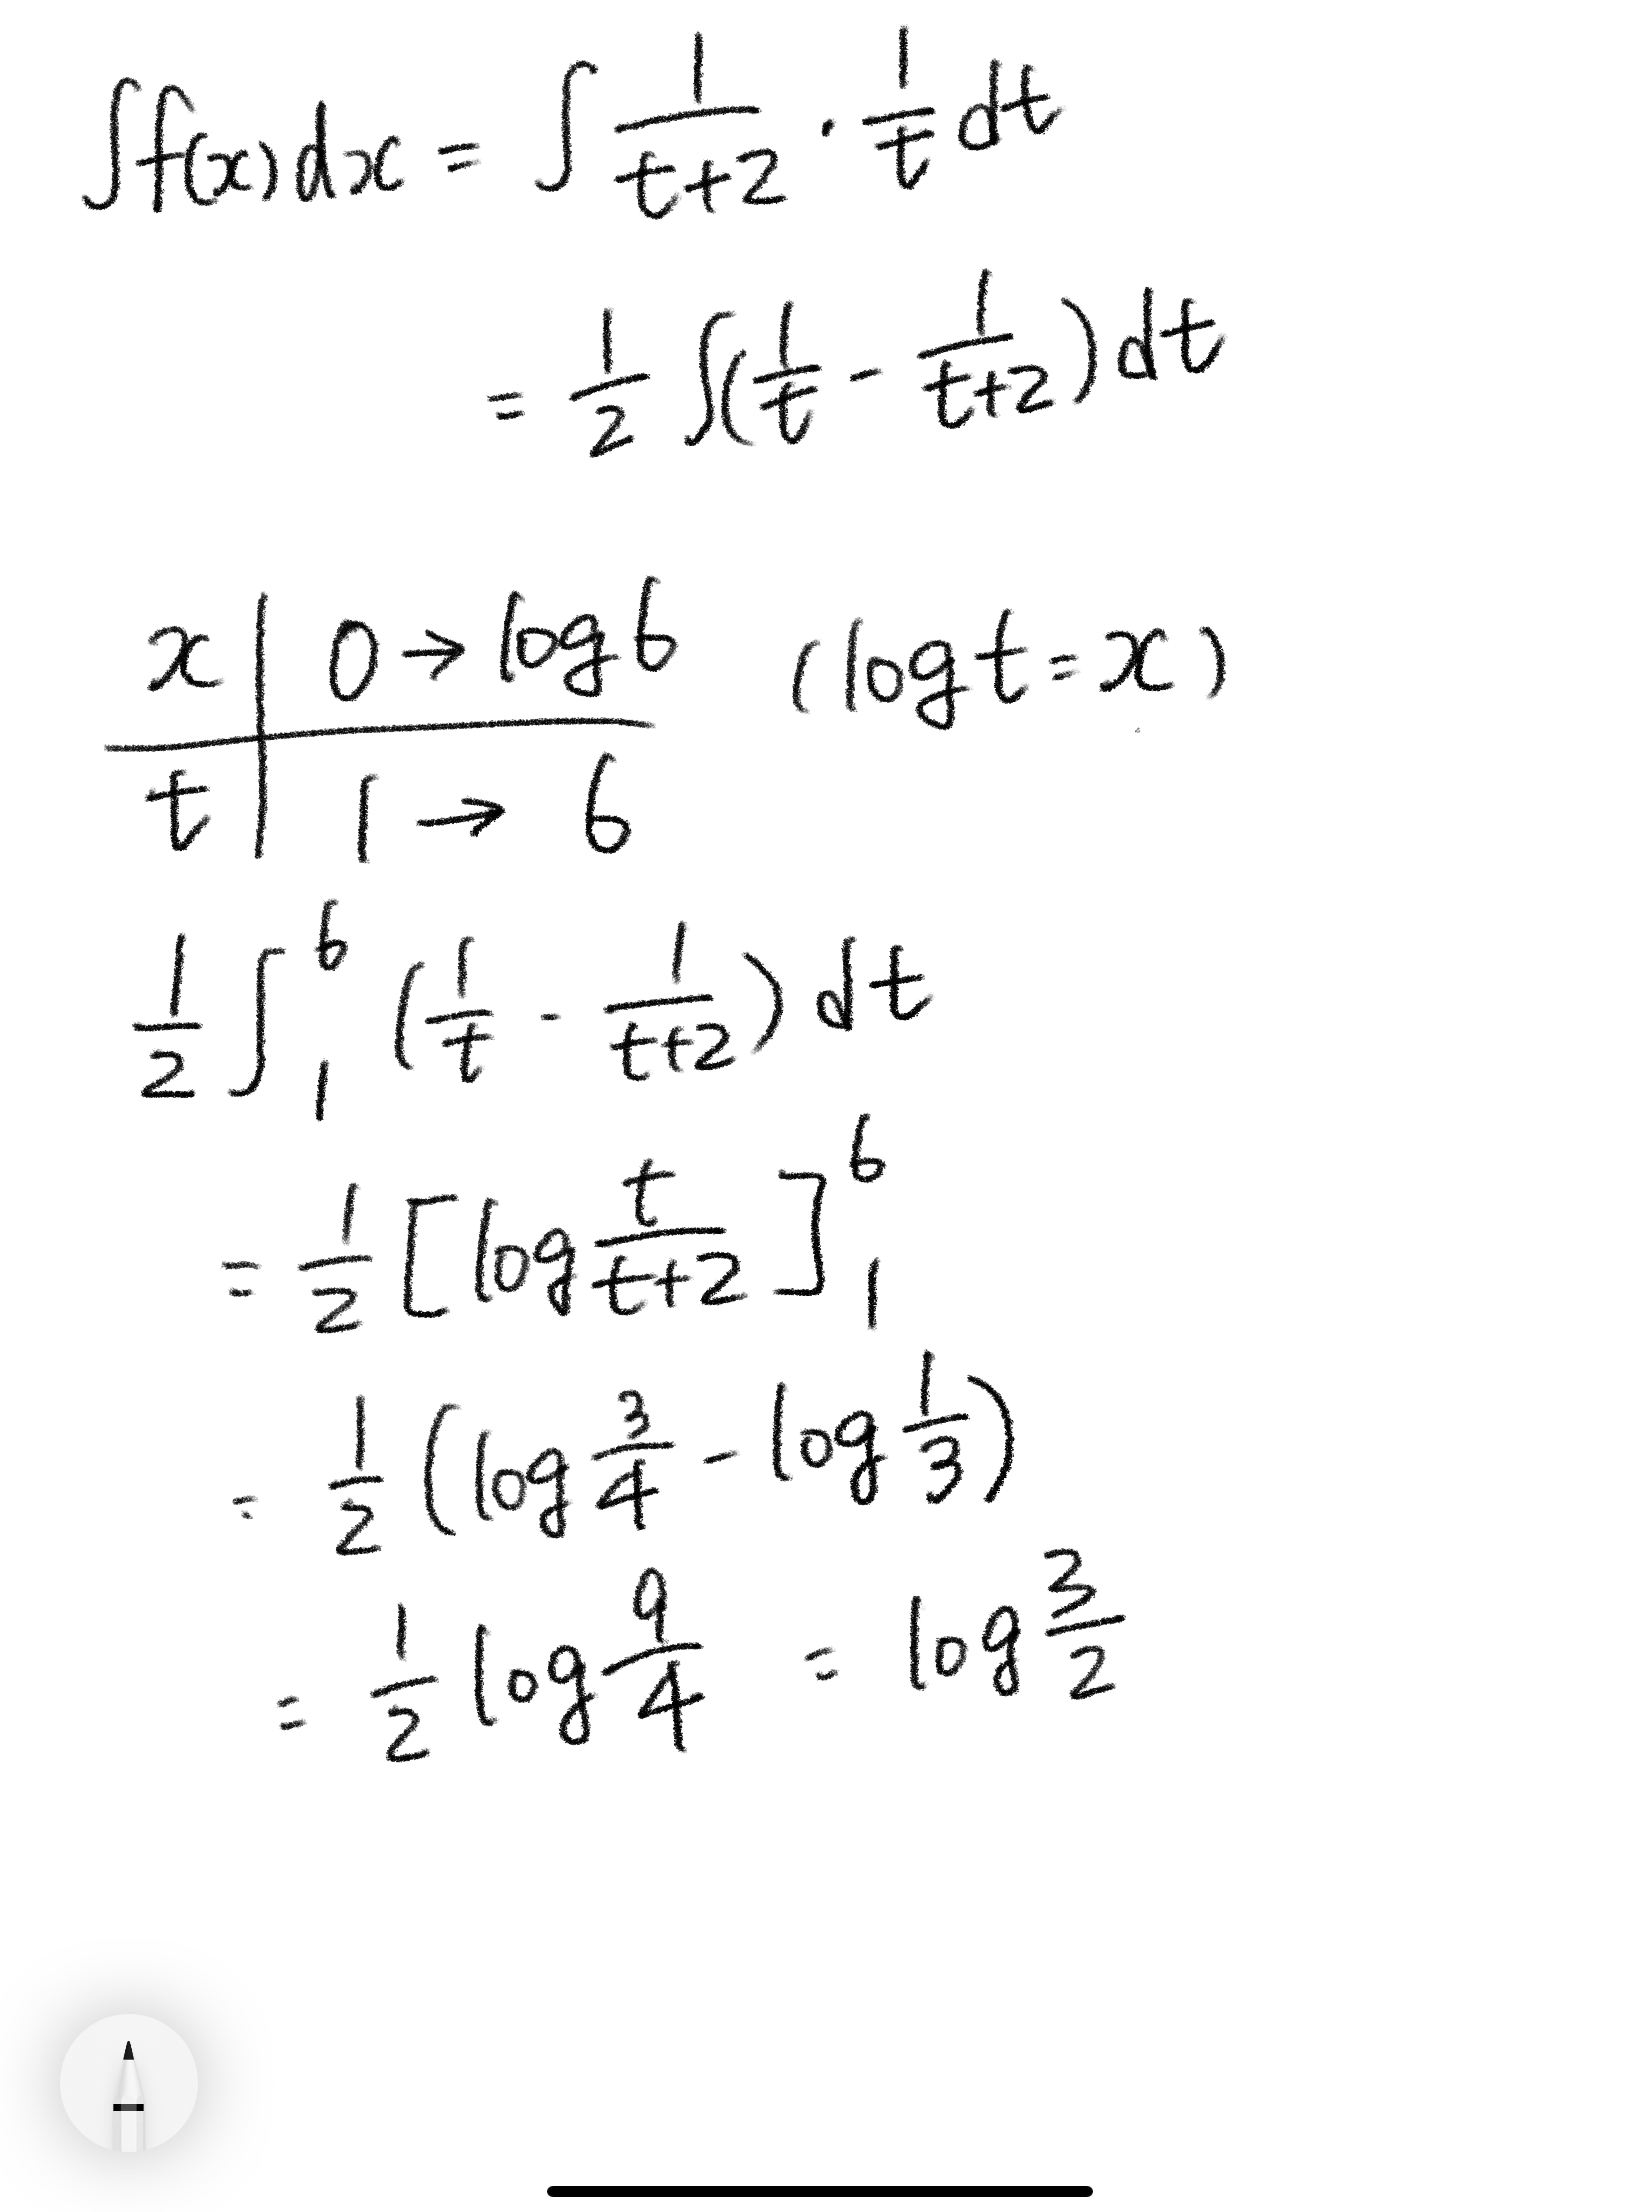 ∫f(x)dx = ∫ 1/(t+2) · 1/t dt
= 1/2 ∫(1/t - 1/(t+2))dt
x | 0 → log6 (log t = x)
t | 1 → 6
1/2 ∫_1^6 (1/t - 1/(t+2)) dt
= 1/2 [log t/(t+2)]_1^6
= 1/2 (log 3/4 - log 1/3)
= 1/2 log 9/4 = log 3/2